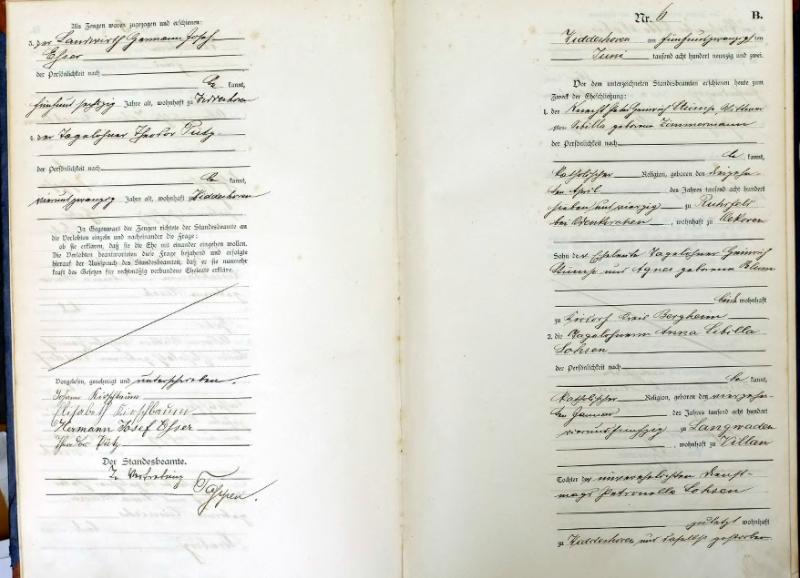 Als Zeugen waren zugezogen und erschienen:
3. der Landwirth Hermann Josef
Esser
der Persönlichkeit nach
be kannt,
fünfund sechzig Jahre alt, wohnhaft zu Hiddenhoven
4. der Tagelöhner Theodor Pütz
der Persönlichkeit nach
be kannt,
vierundzwanzig Jahre alt, wohnhaft Hiddenhoven
In Gegenwart der Zeugen richtete der Standesbeamte an
die Verlobten einzeln und nacheinander die Frage:
ob sie erklären, daß sie die Ehe mit einander eingehen wollen.
Die Verlobten beantworteten diese Frage bejahend und erfolgte
hierauf der Ausspruch des Standesbeamten, daß er sie nunmehr
kraft des Gesetzes für rechtmäßig verbundene Eheleute erkläre.
Vorgelesen, genehmigt und unterschrieben.
Johann Kirschbaum
Elisabeth Kirschbaum
Hermann Josef Esser
Theodor Pütz
Der Standesbeamte.
In Vertretung
Nr. 6
B.
am fünfundzwanzigsten
Juni tausend acht hundert neunzig und zwei.
Vor dem unterzeichneten Standesbeamten erschienen heute zum
Zweck der Eheschließung:
1. der Knecht Peter Heinrich Stump, Wittwer
von Sibilla geborene Zimmermann
der Persönlichkeit nach
be kannt,
katholischer Religion, geboren den dreizehn
ten April des Jahres tausend acht hundert
sieben und vierzig zu
bei Odenkirchen, wohnhaft zu
Sohn der Eheleute Tagelöhner Heinrich
Stump und Agnes geborene Blum
wohnhaft
zu Kreis Bergheim
2. die Tagelöhnerin Anna Sibilla
Lohsen
der Persönlichkeit nach
be kannt,
katholischer Religion, geboren den vierzehn
ten Januar des Jahres tausend acht hundert
vierundfünfzig zu Langwaden
, wohnhaft zu Villau
Tochter der unverehelichten Dienst-
magd Petronella Lohsen
zuletzt wohnhaft
zu Hiddenhoven und daselbst gestorben